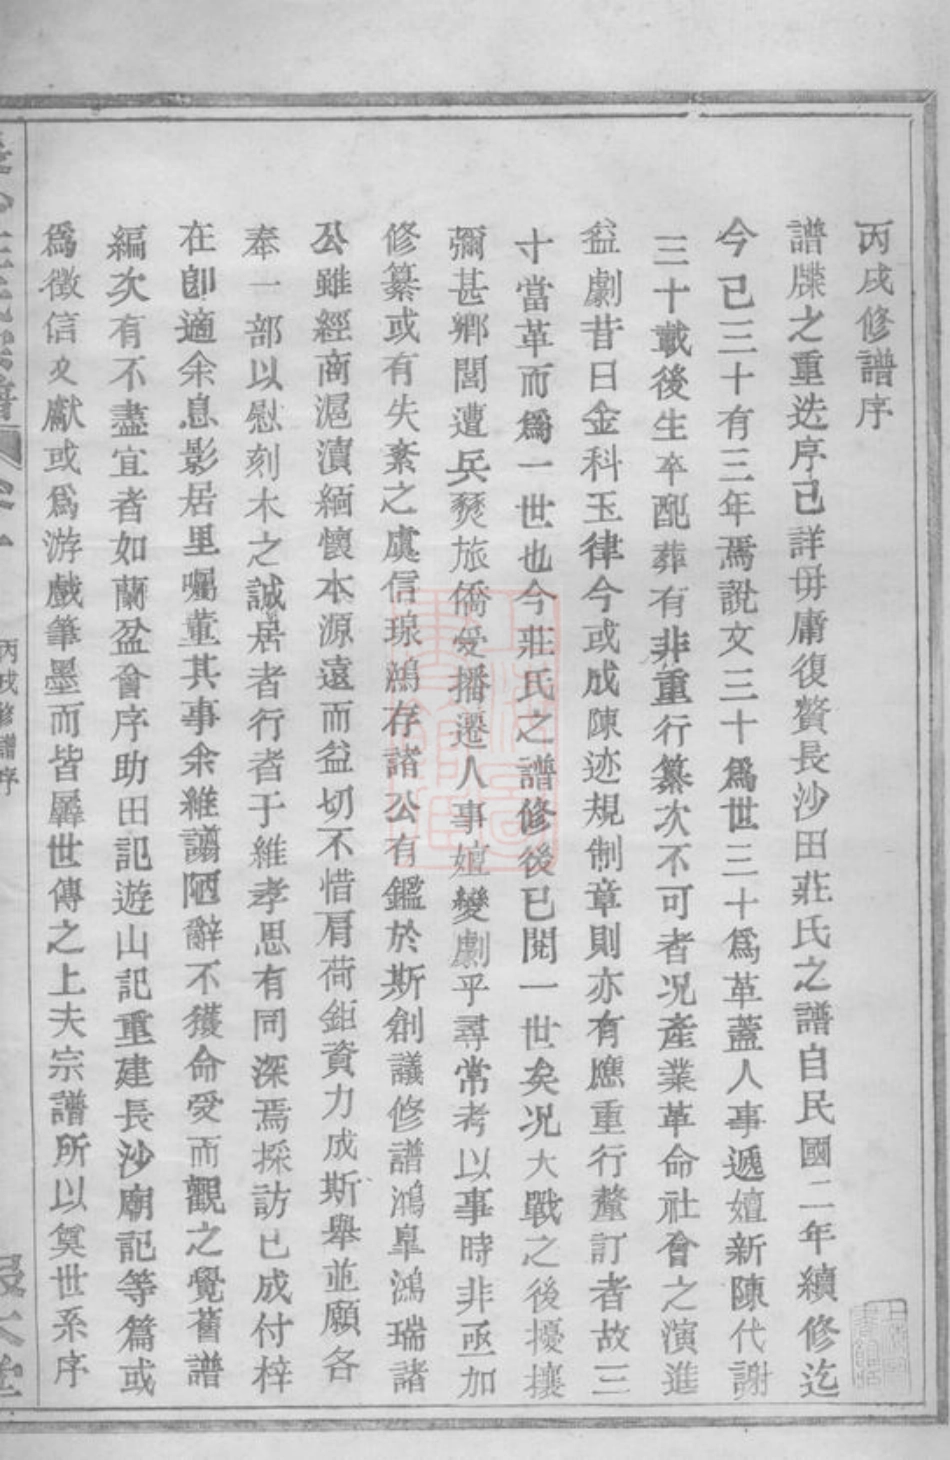 丙戌修譜序
譜牒之重迭序已詳毋庸復贅長沙田莊氏之譜自民國二年續修迄
今已三十有三年焉說文三十爲世三十爲革蓋人事遞嬗新陳代謝
三十載後生卒配葬有非重行纂次不可者况產業革命社會之演進
益劇昔日金科玉律今或成陳迹規制章則亦有應重行釐訂者故三
十當革而爲一世也今莊氏之譜修後已閱一世矣况大戰之後擾攘
彌甚鄉閭遭兵燹旅僑受播遷人事嬗變劇乎尋常考以事時非亟加
修纂或有失紊之虞信琅鴻存諸公有鑑於斯創議修譜鴻臯鴻瑞諸
公雖經商滬瀆緬懷本源遠而益切不惜肩荷鉅資力成斯舉並願各
奉一部以慰刻木之誠居者行者于維孝思有同深焉採訪已成付梓
在卽適余息影居里囑董其事余維譾陋辭不獲命受而觀之覺舊譜
編次有不盡宜者如蘭盆會序助田記遊山記重建長沙廟記等篇或
爲徵信文獻或爲游戲筆墨而皆羼世傳之上夫宗譜所以奠世系序
丙戌修譜序